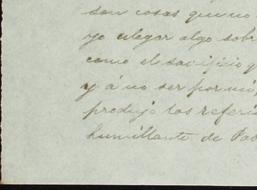 son cosas que no
yo alegar algo sobr
como el sacrificio y
y á no ser por mi,
produjo los referi
humillante de Pab